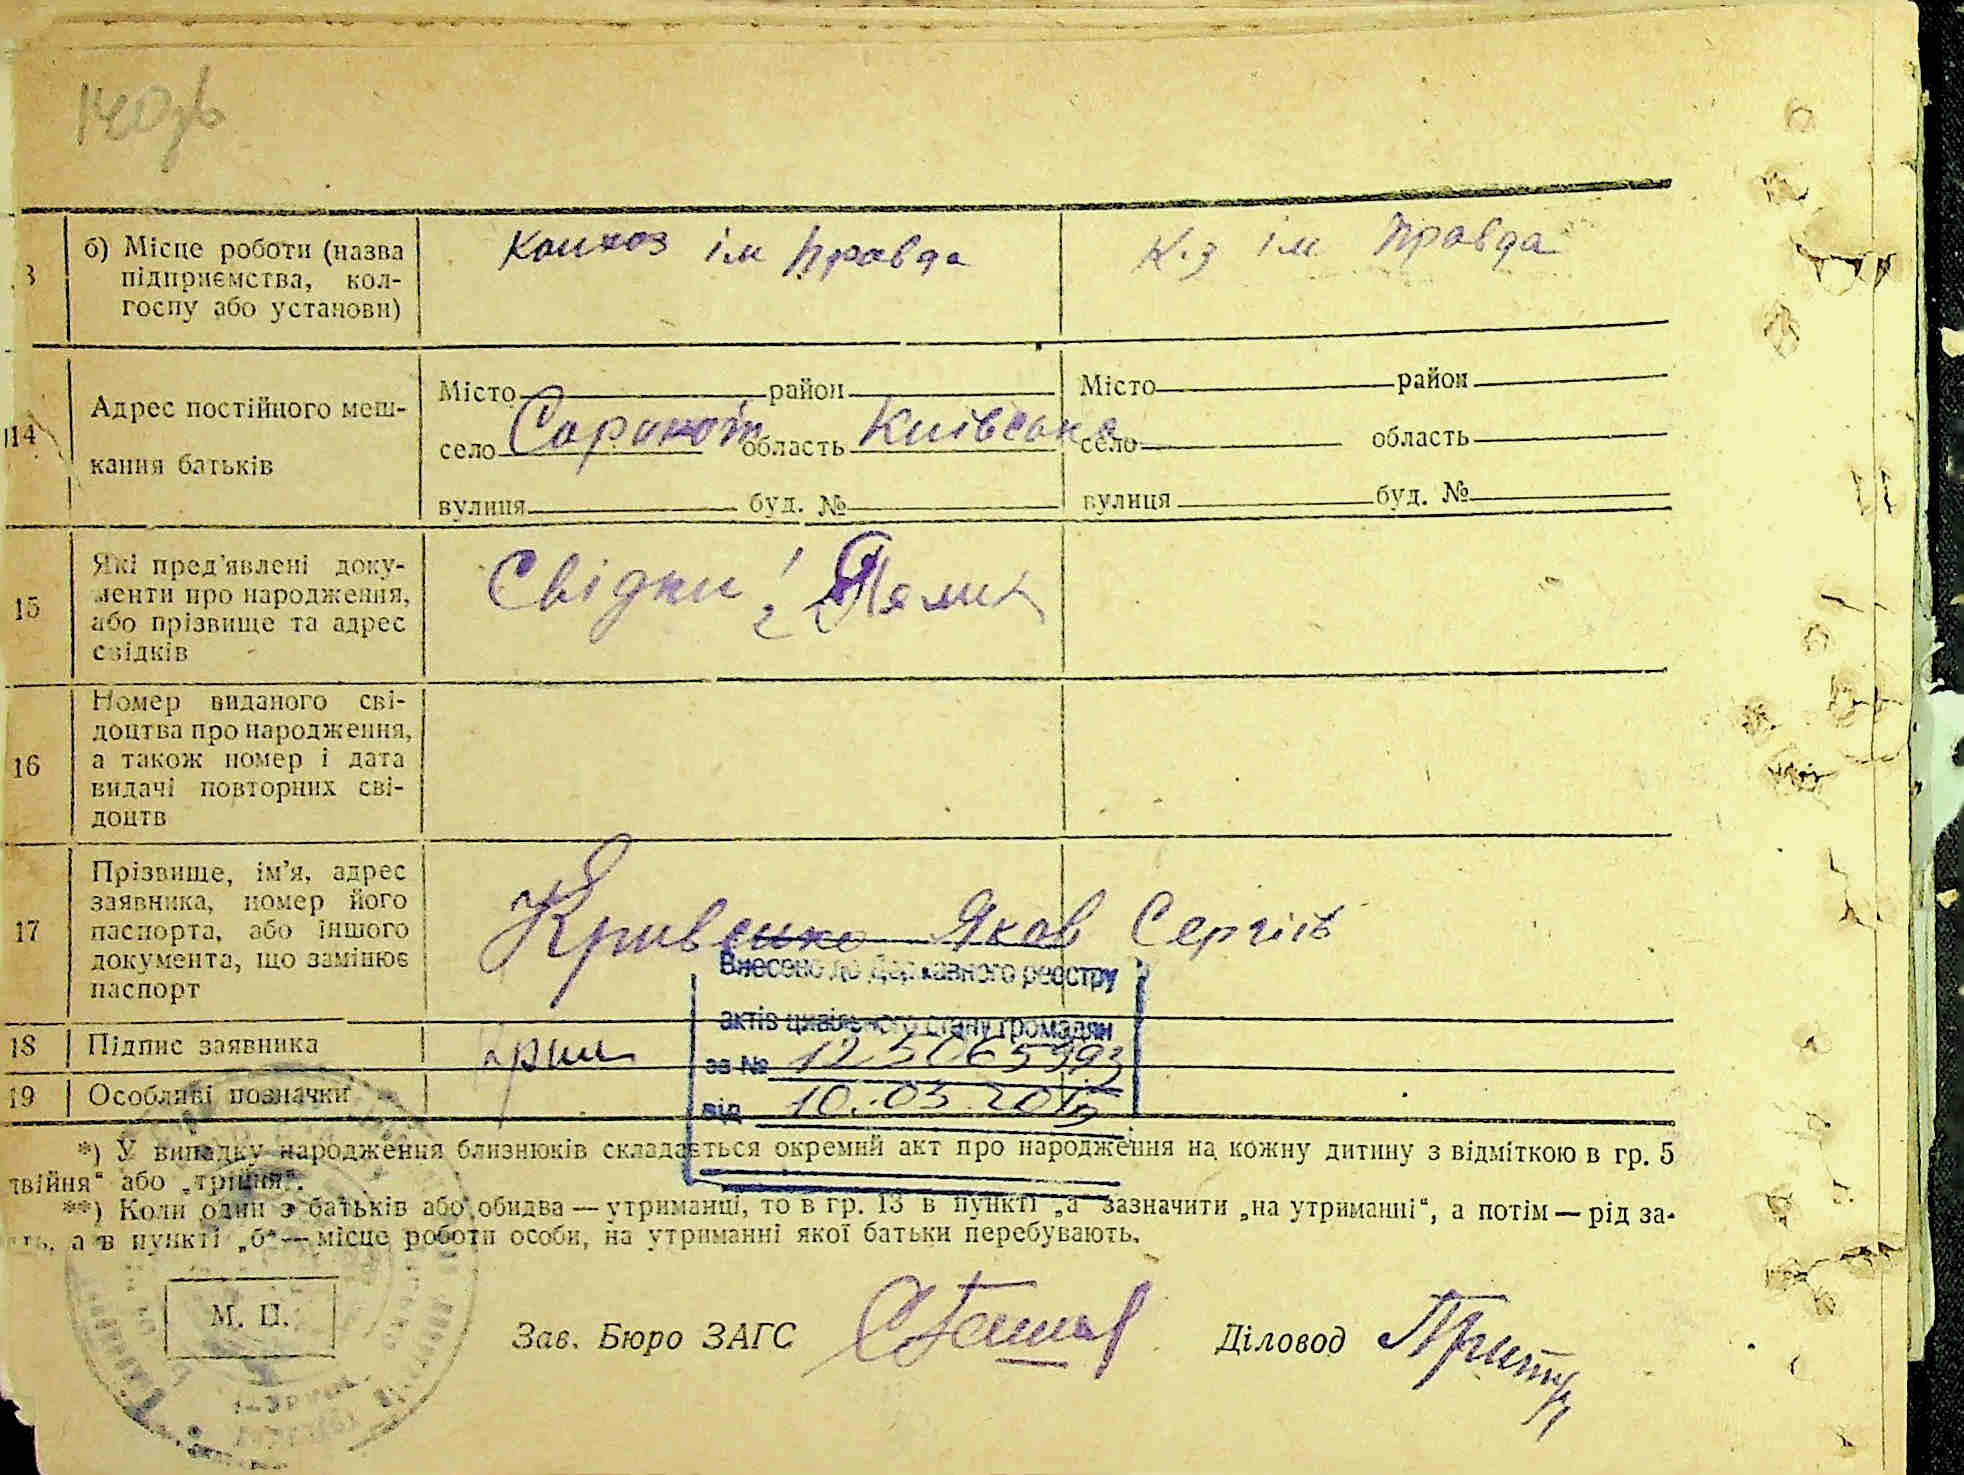 140
б) Місце роботи (назва підприємства, колгоспу або установи)
Колхоз ім Правда
К.з ім Правда
14
Адрес постійного мешкання батьків
Місто район
село область Київська
вулиця буд. №
Місто район
село область
вулиця буд. №
15
Які пред'явлені документи про народження, або прізвище та адрес свідків
Свідки
16
Номер виданого свідоцтва про народження, а також номер і дата видачі повторних свідоцтв
17
Прізвище, ім'я, адрес заявника, номер його паспорта, або іншого документа, що замінює паспорт
Кривенко Яков Сергіїв
Внесено до Державного реєстру
актів цивільного стану громадян
за №
від 10.03.2015
18
Підпис заявника
19
Особливі позначки
*) У випадку народження близнюків складається окремий акт про народження на кожну дитину з відміткою в гр. 5
двійня" або „трійня".
**) Коли один з батьків або обидва — утриманці, то в гр. 13 в пункті „а зазначити „на утриманні", а потім — рід за-
а в пункті „б" — місце роботи особи, на утриманні якої батьки перебувають.
М. П.
Зав. Бюро ЗАГС
Діловод